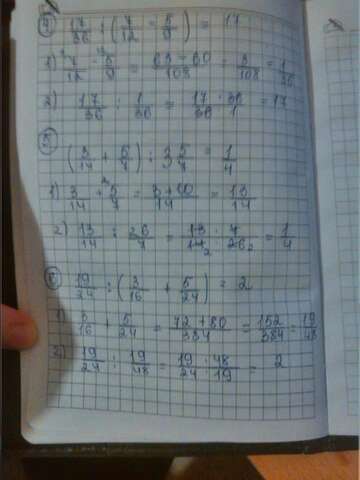 ④ 17/36 : (7/12 - 5/9) = 17
1) 7/12 - 5/9 = 63-60/108 = 3/108 = 1/36
2) 17/36 : 1/36 = 17/36 · 36/1 = 17
⑤
(3/14 + 5/7) : 3 5/7 = 1/4
1) 3/14 + 5/7 = 3+10/14 = 13/14
2) 13/14 : 26/7 = 13/14 · 7/26 = 1/4
19/24 : (3/16 + 5/24) = 2
1) 3/16 + 5/24 = 72+80/384 = 152/384 = 19/48
2) 19/24 : 19/48 = 19/24 · 48/19 = 2